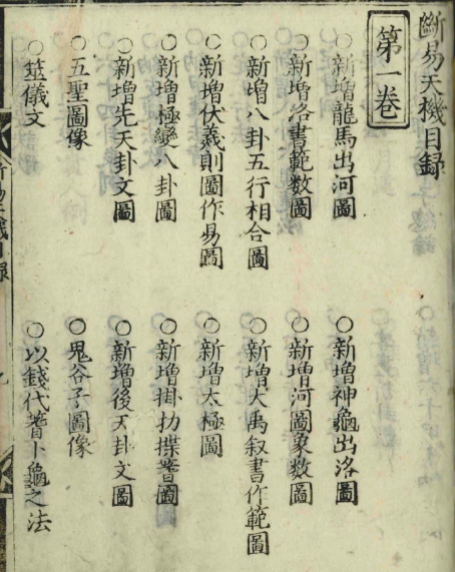 斷易天機目録
第一卷
○新增龍馬出河圖
○新增神龜出洛圖
○新增洛書範數圖
○新增河圖象數圖
○新增八卦五行相合圖
○新增大禹叙書作範圖
○新增伏羲則圖作易圖
○新增太極圖
○新增極變八卦圖
○新增掛扐揲蓍圖
○新增先天卦文圖
○新增後天卦文圖
○五聖圖像
○鬼谷子圖像
○筮儀文
○以錢代蓍卜龜之法